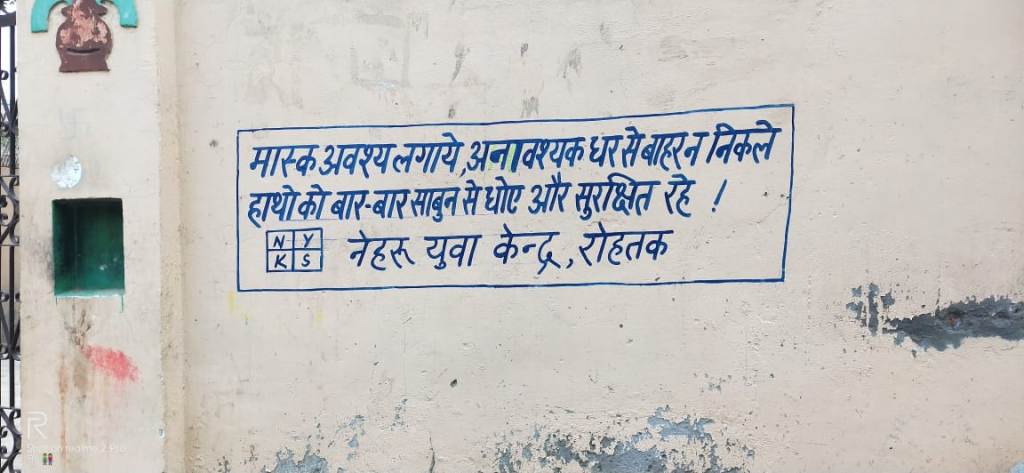 मास्क अवश्य लगाये, अनावश्यक घर से बाहर न निकले
हाथो को बार-बार साबुन से धोए और सुरक्षित रहे !
N Y
K S
नेहरू युवा केन्द्र, रोहतक
R
Shot on realme 2 Pro